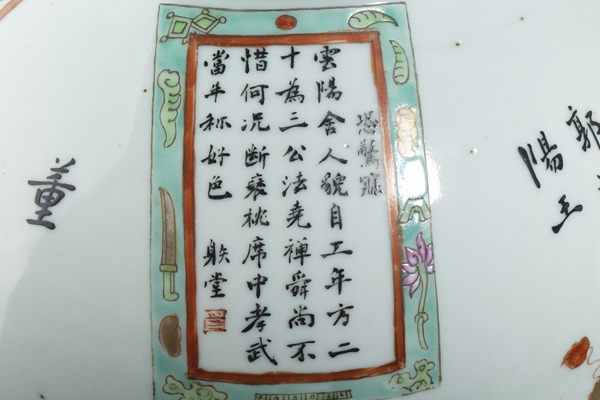 郭
陽王
恐驚寐
雲陽舍人貌自工年方二
十為三公法堯禪舜尚不
惜何况斷褎桃席中孝武
當年称好色 堂
董